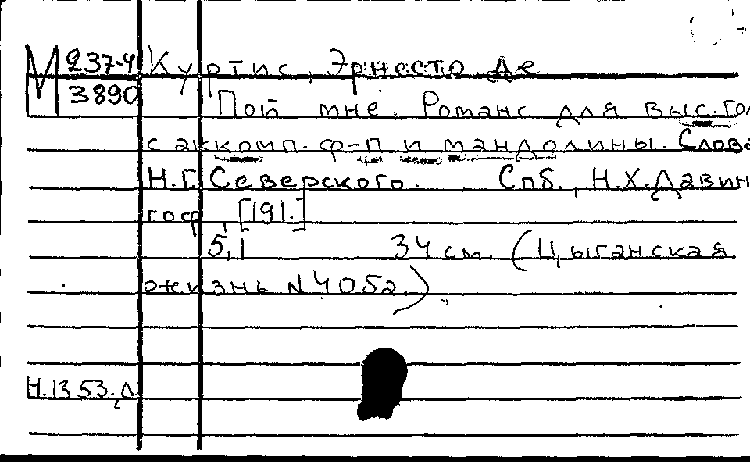 М 237-4 Куртис, Эрнесто де
3890 Пой мне. Романс для выс. гол
с аккомп. ф-п и мандолины. Слова
Н.Г. Северского. Спб., Н.Х. Давин
гоф, [191.]
5,1 34 см. (Цыганская
жизнь N 405а.)
Н.1353.д